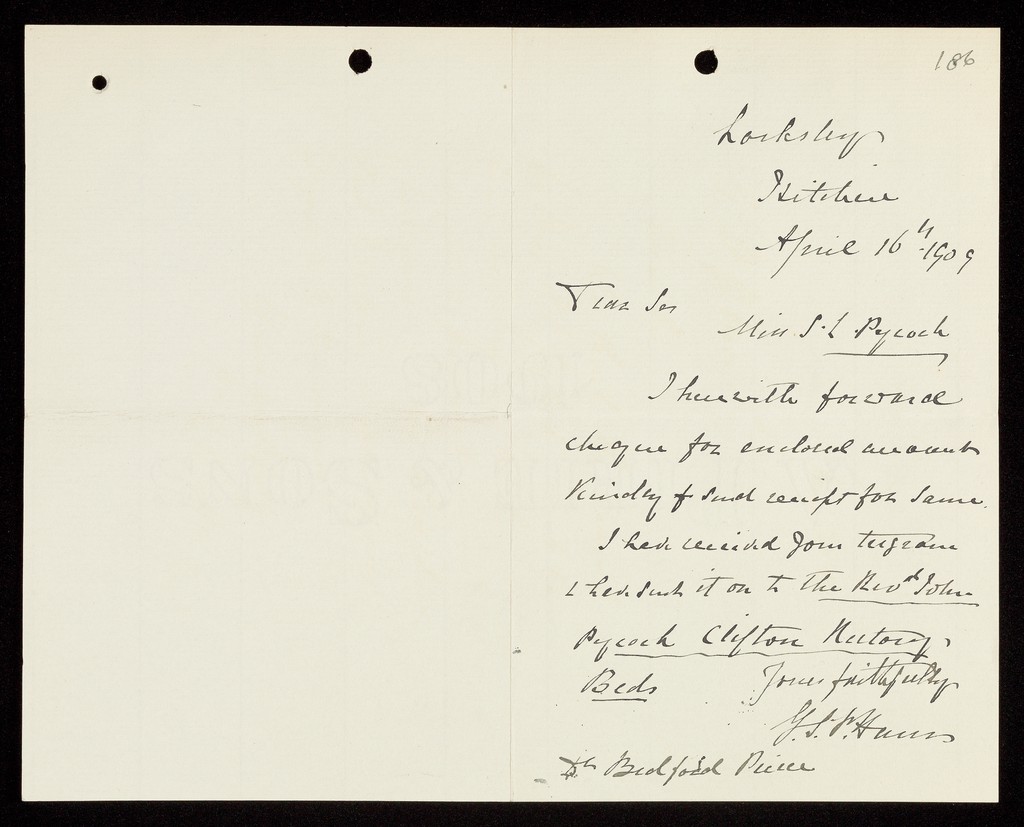 186
Locksley
Hitchin
April 16th 1909
Dear Sir
Miss S. L. Pycock
I herewith forward
cheque for enclosed account
Kindly send receipt for same.
I have received your telegram
& have sent it on to The Revd John
Pycock Clifton Rectory,
Beds
Yours faithfully
Dr Bedford Pierce